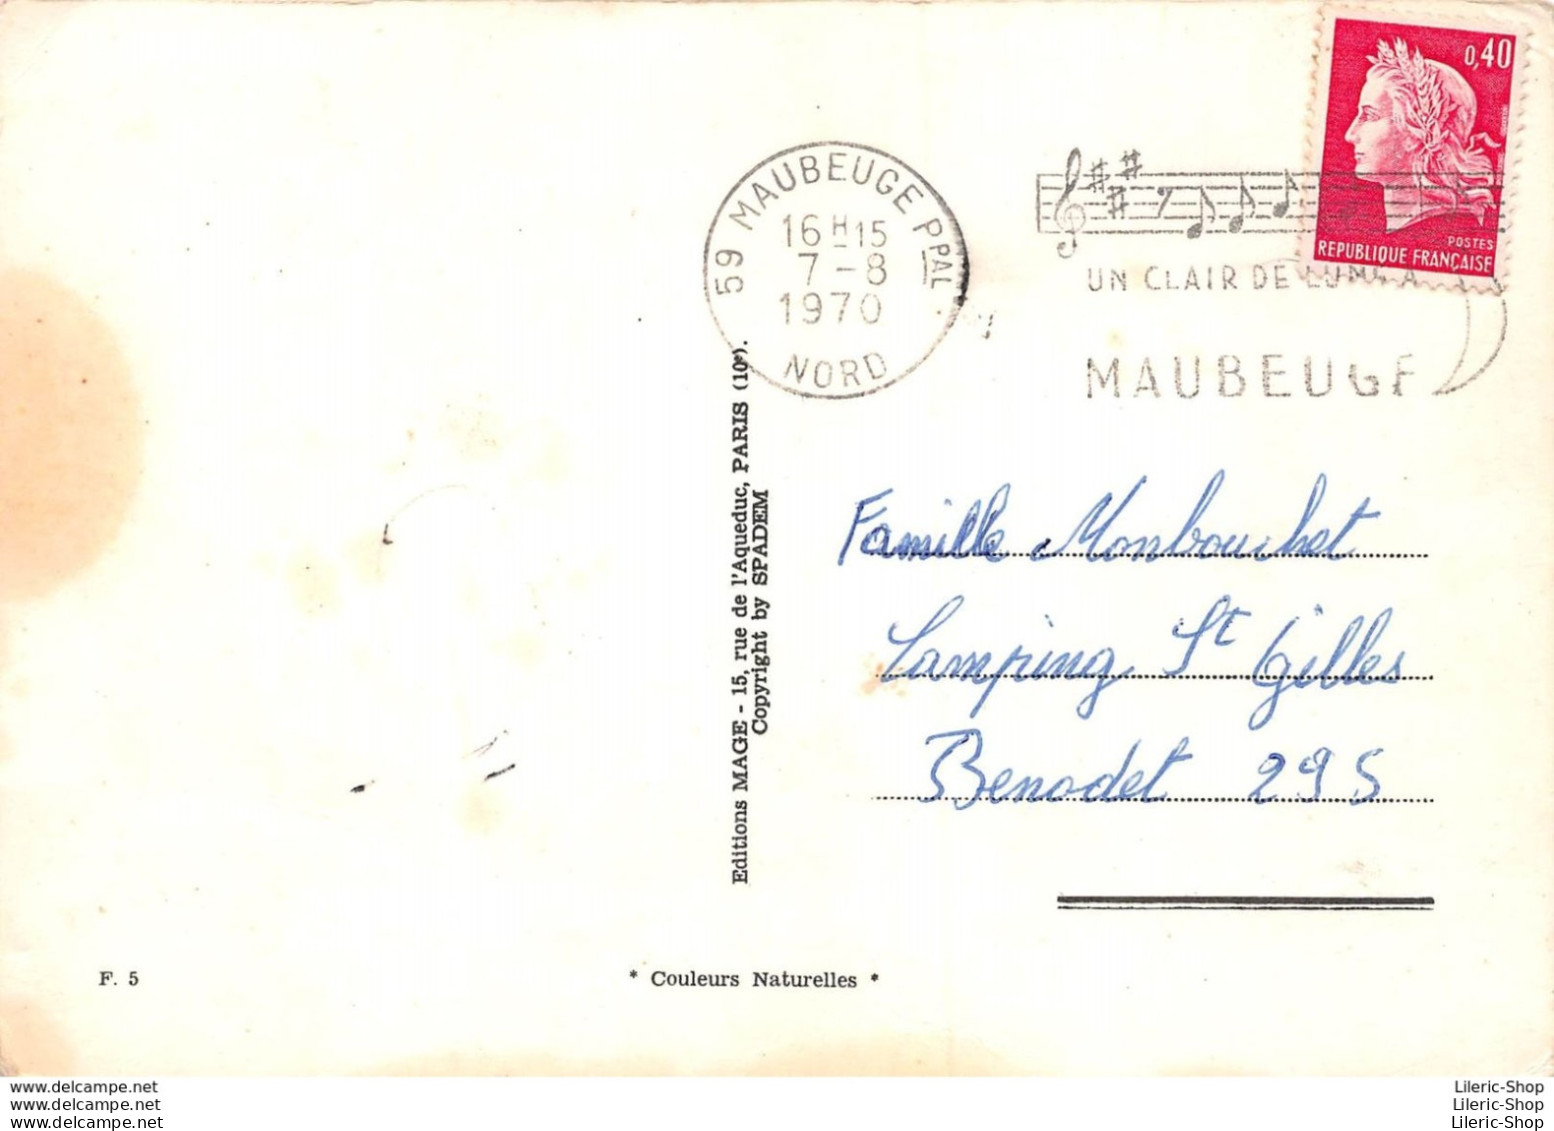 0,40
POSTES
REPUBLIQUE FRANÇAISE
59 MAUBEUGE PPAL
16 H 15
7 - 8
1970
NORD
UN CLAIR DE LUNE A
MAUBEUGE
Editions MAGE - 15, rue de l'Aqueduc, PARIS (10e).
Copyright by SPADEM
Famille Monbouchet
Camping St Gilles
Benodet 29S
F. 5
* Couleurs Naturelles *
www.delcampe.net
www.delcampe.net
www.delcampe.net
Lileric-Shop
Lileric-Shop
Lileric-Shop